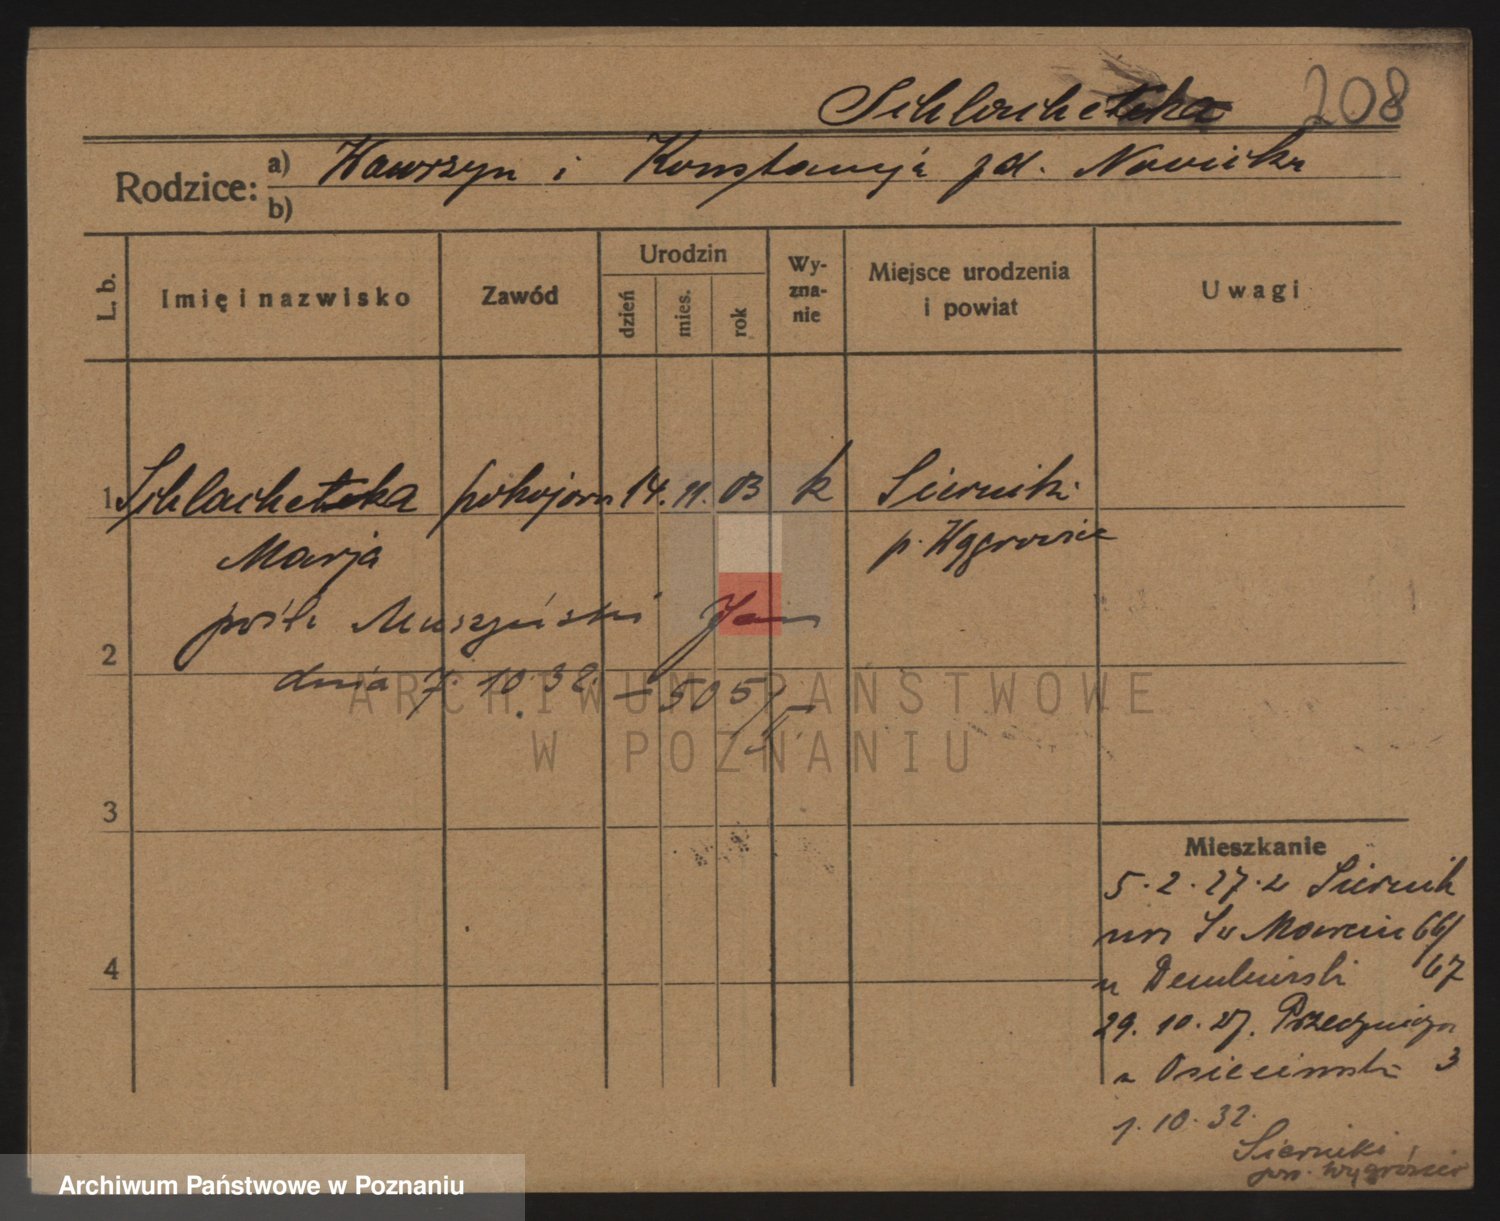 Schlachetzka 208
Rodzice: a) Wawrzyn i Konstancja zd. Nowicka
b)
L. b. Imię i nazwisko Zawód Urodzin dzień mies. rok Wy-zna-nie Miejsce urodzenia i powiat Uwagi
1 Schlachetzka pokojowa 14. 11. 03 k Sierniki
Marja p. Wągrowiec
pośl. Muszyński Jan
2
dnia 7. 10. 32. – 505/
3
4
Mieszkanie
5. 2. 27. z Siernik
św Marcin 66/67
u Dembinski
29. 10. 27. 3
u Osiecinski
1. 10. 32.
Sierniki
pow. Wągrówiec
ARCHIWUM PAŃSTWOWE
W POZNANIU
Archiwum Państwowe w Poznaniu